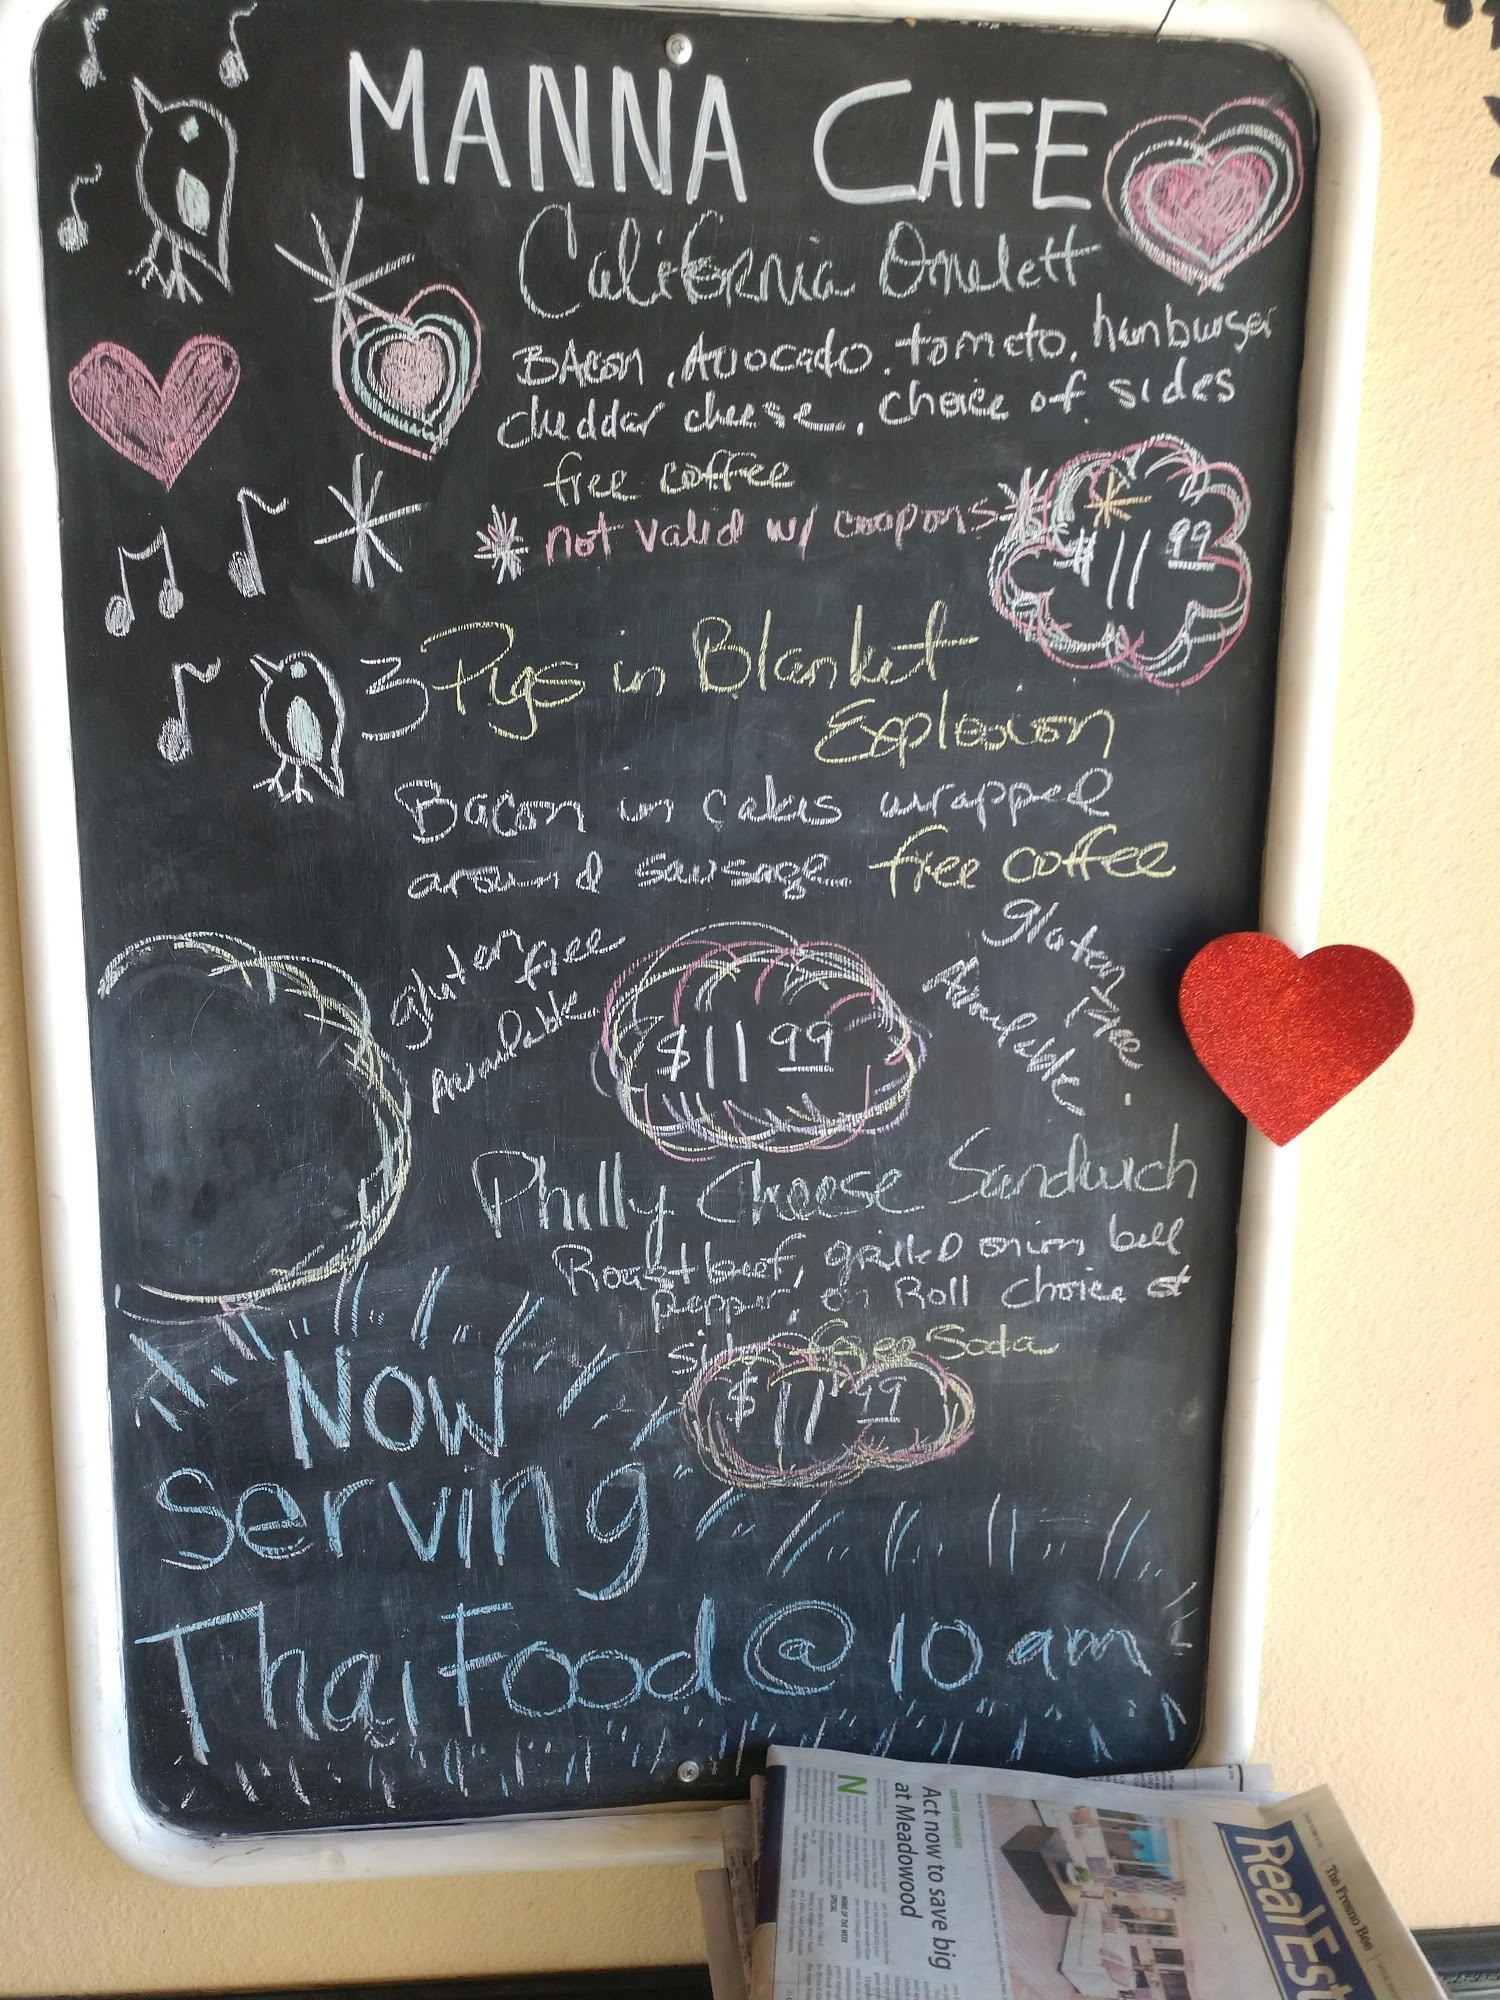 MANNA CAFE
California Omelett
BAcon, Avocado, tomato, hamburger
cheddar cheese, choice of sides
free coffee
* not valid w/ coupons *
$11 99
3 Pigs in Blanket
Explosion
Bacon in cakes wrapped
around sausage free coffee
gluten free
Available
gluten free
Available.
$11 99
Philly Cheese Sandwich
Roast beef, grilled onion bell
pepper, on Roll choice of
free Soda
$11 99
NOW
Serving
Thai Food @ 10 am
Act now to save big
at Meadowood
HOME OF THE WEEK
SPECIAL
The Fresno Bee
Real Est